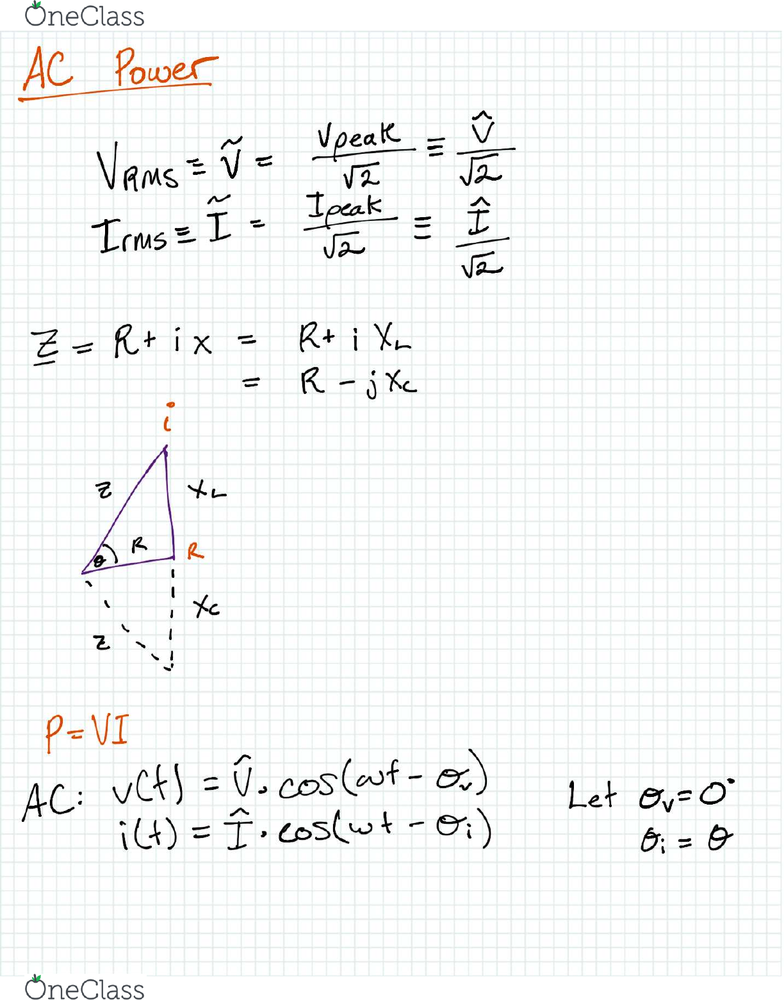 OneClass
AC Power
V_RMS ≡ Ṽ = Vpeak/√2 ≡ V̂/√2
I_rms ≡ Ĩ = Ipeak/√2 ≡ Î/√2
Z = R + i x = R + i X_L
= R - j X_C
i
Z X_L
θ R R
X_C
Z
P = VI
AC: v(t) = V̂ . cos(ωt - θ_v) Let θ_v = 0°
i(t) = Î . cos(ωt - θ_i) θ_i = θ
OneClass